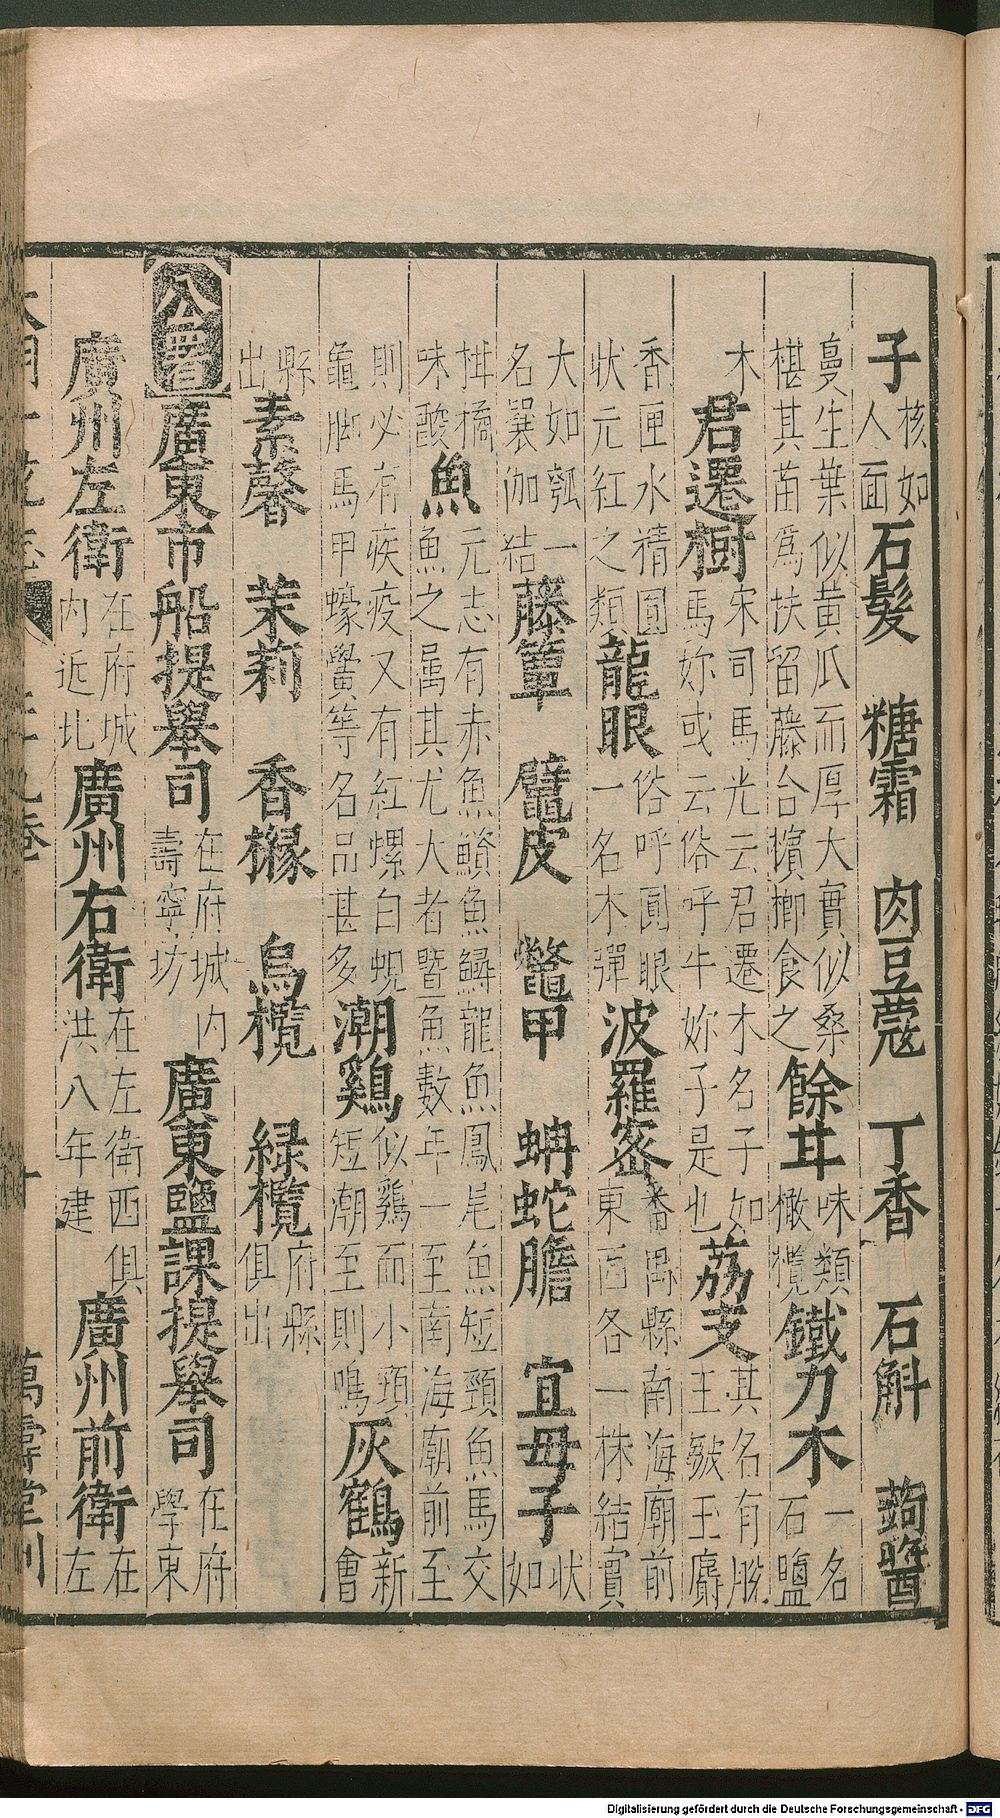 子核如人面石髮 糖霜 肉豆蔻 丁香 石斛 蒟醬
蔓生葉似黃瓜而厚大實似桑椹其苗爲扶留藤合檳榔食之餘甘味類橄欖鐵力木一名石鹽
木君遷樹宋司馬光云君遷木名子如馬妳或云俗呼牛妳子是也荔支其名有脫王皺玉麝
香匣水精圓狀元紅之類龍眼俗呼圓眼一名木彈波羅蜜番禺縣南海廟前東西各一株結實
大如瓠一名曩伽結藤簟 鼊皮 鼈甲 蚺蛇膽 宜母子狀如
柑橘味酸魚元志有赤魚鱝魚鱘龍魚鳳尾魚短頸魚馬交魚之属其尤大者曁魚數年一至南海廟前至
則必有疾疫又有紅螺白蜆龜脚馬甲蠔黌等名品甚多潮鷄似鷄而小頸短潮至則鳴灰鶴新會
縣出素馨 茉莉 香櫞 烏欖 緑欖府縣俱出
公署廣東市舶提舉司在府城内壽寧坊廣東鹽課提舉司在府學東
廣州左衛在府城内近北廣州右衛在左衛西俱洪八年建廣州前衛在左
大明一統志 卷 萬壽堂刊
Digitalisierung gefördert durch die Deutsche Forschungsgemeinschaft - DFG